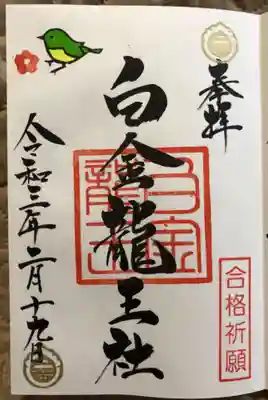 奉拝
白金龍王社
令和三年二月十九日
合格祈願